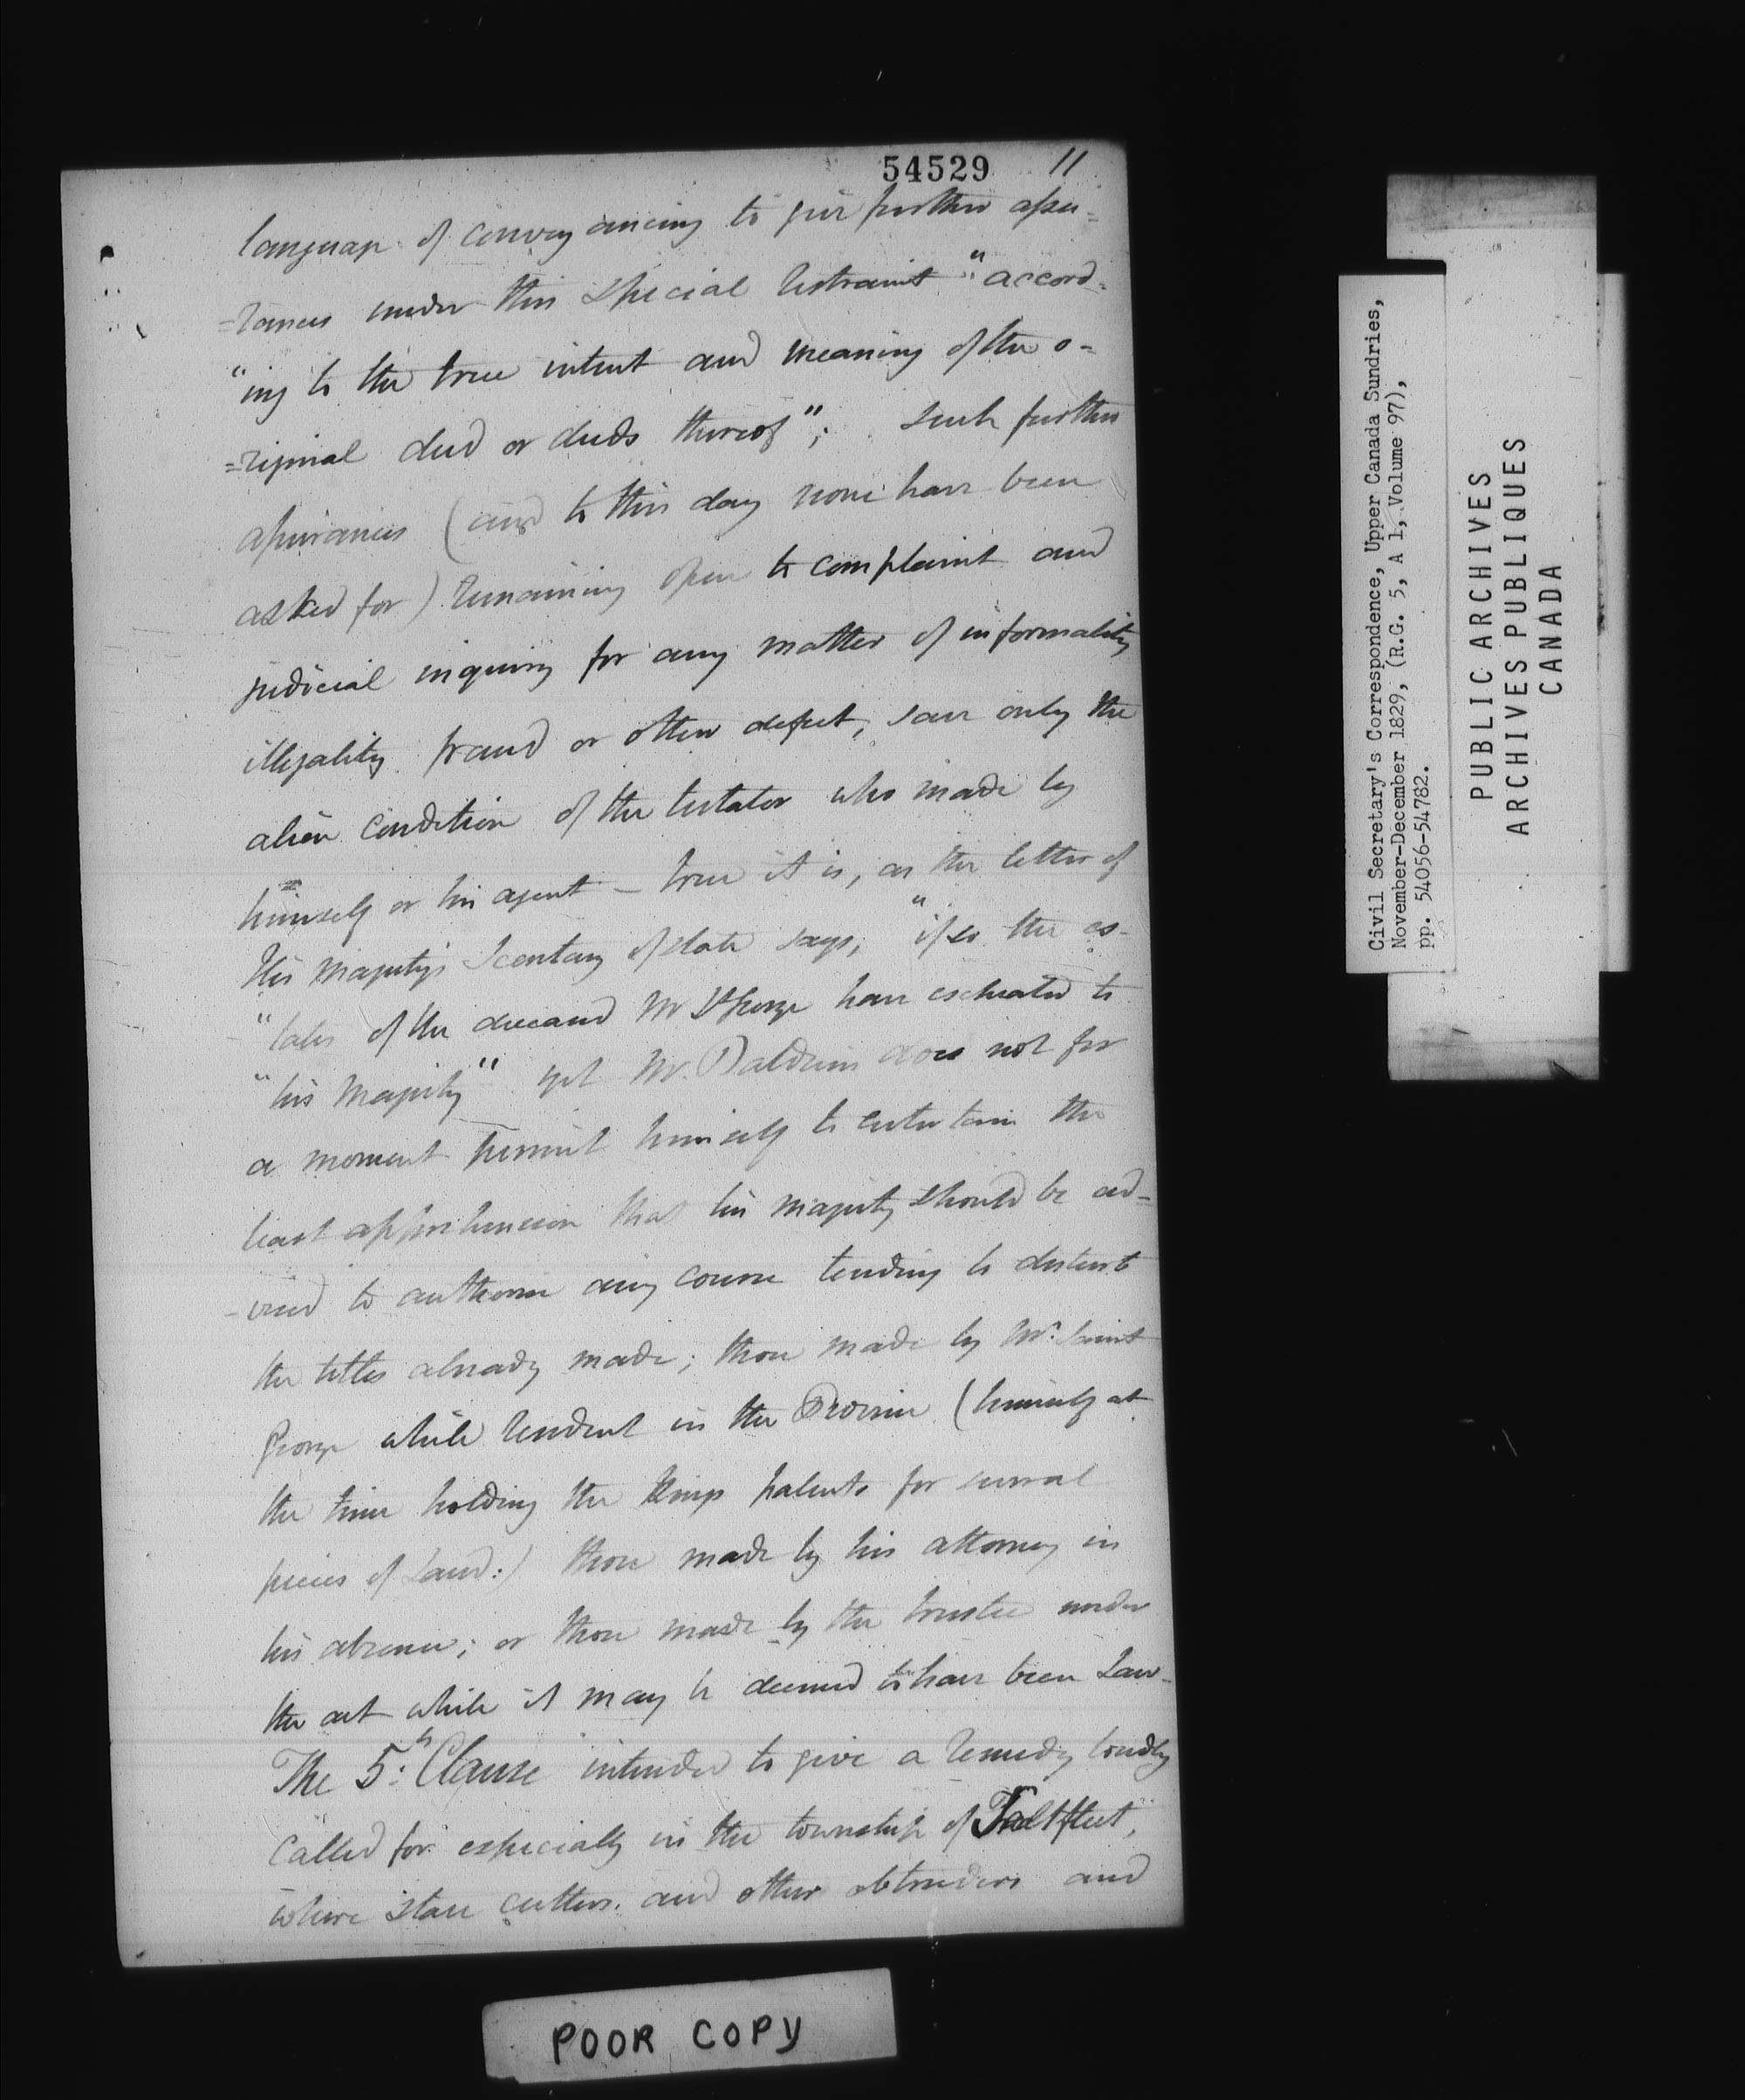 54529 11
language of conveyancing to give further assu=
=rances under this special restraint "accord-
"ing to the true intent and meaning of the o-
=riginal deed or deeds thereof"; such further
assurances (and to this day none have been
asked for) remaining open to complaint and
judicial inquiry for any matter of informality
illegality fraud or other defect, save only the
alien condition of the testator who made by
himself or his agent – true it is, as the letter of
His Majesty's Secretary of state says, "if so the es-
"tates of the deceased Mr St George have escheated to
"his Majesty" yet Mr. Baldwin does not for
a moment permit himself to entertain the
least apprehension that his majesty should be ad-
-vised to authorise any course tending to disturb
the titles already made; those made by Mr. Saint
George while resident in the Province (himself at
the time holding the Kings patents for several
pieces of Land:) those made by his attorney in
his absence; or those made by the trustee under
the act while it may be deemed to have been Law-
The 5th Clause intended to give a remedy loudly
called for especially in the township of Saltfleet,
where stave cutters and other obtruders and
POOR COPY
Civil Secretary's Correspondence, Upper Canada Sundries,
November-December 1829, (R.G. 5, A 1, Volume 97),
pp. 54056-54782.
PUBLIC ARCHIVES
ARCHIVES PUBLIQUES
CANADA